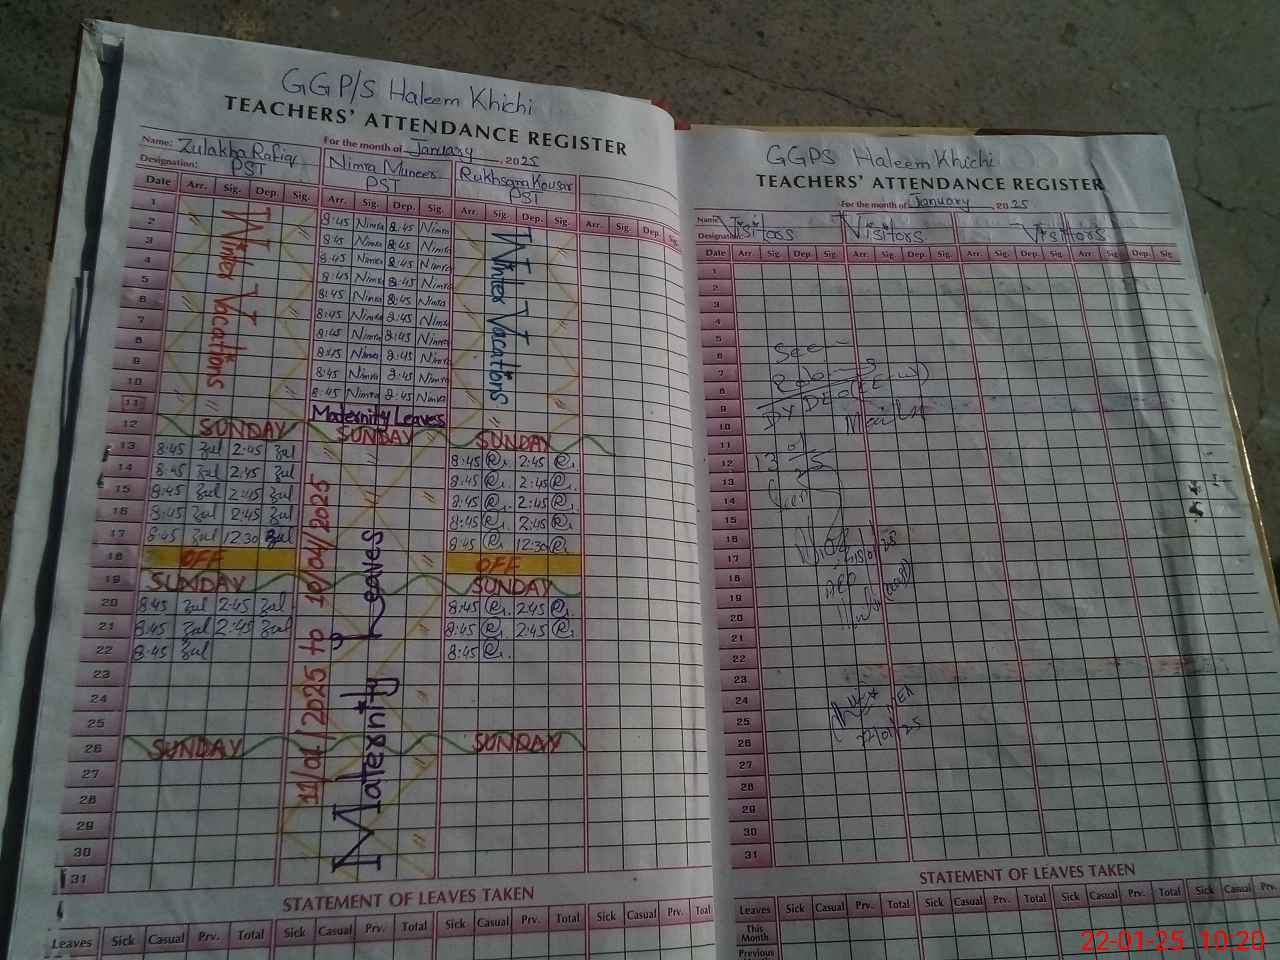 GGP/S Haleem Khichi
TEACHERS' ATTENDANCE REGISTER
For the month of January, 2025
Name: Zulakha Rafiq Nimra Muneer Rukhsana Kousar
Designation: PST PST PST
Date Arr. Sig. Dep. Sig. Arr. Sig. Dep. Sig. Arr. Sig. Dep. Sig. Arr. Sig. Dep. Sig.
Winter Vacations
Winter Vacations
1
2 8:45 Nimra 2:45 Nimra
3 8:45 Nimra 2:45 Nimra
4 8:45 Nimra 2:45 Nimra
5 8:45 Nimra 2:45 Nimra
6 8:45 Nimra 2:45 Nimra
7 8:45 Nimra 2:45 Nimra
8 8:45 Nimra 2:45 Nimra
9 8:45 Nimra 2:45 Nimra
10 8:45 Nimra 2:45 Nimra
11 8:45 Nimra 2:45 Nimra
Maternity Leaves
12 SUNDAY SUNDAY SUNDAY
13 8:45 Zul 2:45 Zul 8:45 R. 2:45 R.
14 8:45 Zul 2:45 Zul 8:45 R. 2:45 R.
15 8:45 Zul 2:45 Zul 8:45 R. 2:45 R.
16 8:45 Zul 2:45 Zul 8:45 R. 2:45 R.
17 8:45 Zul 12:30 Zul 8:45 R. 12:30 R.
18 OFF OFF
19 SUNDAY SUNDAY
20 8:45 Zul 2:45 Zul 8:45 R. 2:45 R.
21 8:45 Zul 2:45 Zul 8:45 R. 2:45 R.
22 8:45 Zul 8:45 R.
23
24
25
26 SUNDAY SUNDAY
27
28
29
30
31
11/01/2025 to 10/04/2025
Maternity Leaves
STATEMENT OF LEAVES TAKEN
Leaves Sick Casual Prv. Total Sick Casual Prv. Total Sick Casual Prv. Total
GGPS Haleem Khichi
TEACHERS' ATTENDANCE REGISTER
For the month of January, 2025
Name: Visitors Visitors Visitors
Designation:
Date Arr. Sig. Dep. Sig. Arr. Sig. Dep. Sig. Arr. Sig. Dep. Sig. Arr. Sig. Dep. Sig.
1
2
3
4
5
6
7
8
9
10
11
12
13
14
15
16
17
18
19
20
21
22
23
24
25
26
27
28
29
30
31
See
DY DEO (EE-W)
22/01/25
STATEMENT OF LEAVES TAKEN
Leaves Sick Casual Prv. Total Sick Casual Prv. Total Sick Casual Prv. Total Sick Casual Prv.
This Month
Previous
22-01-25 10:20